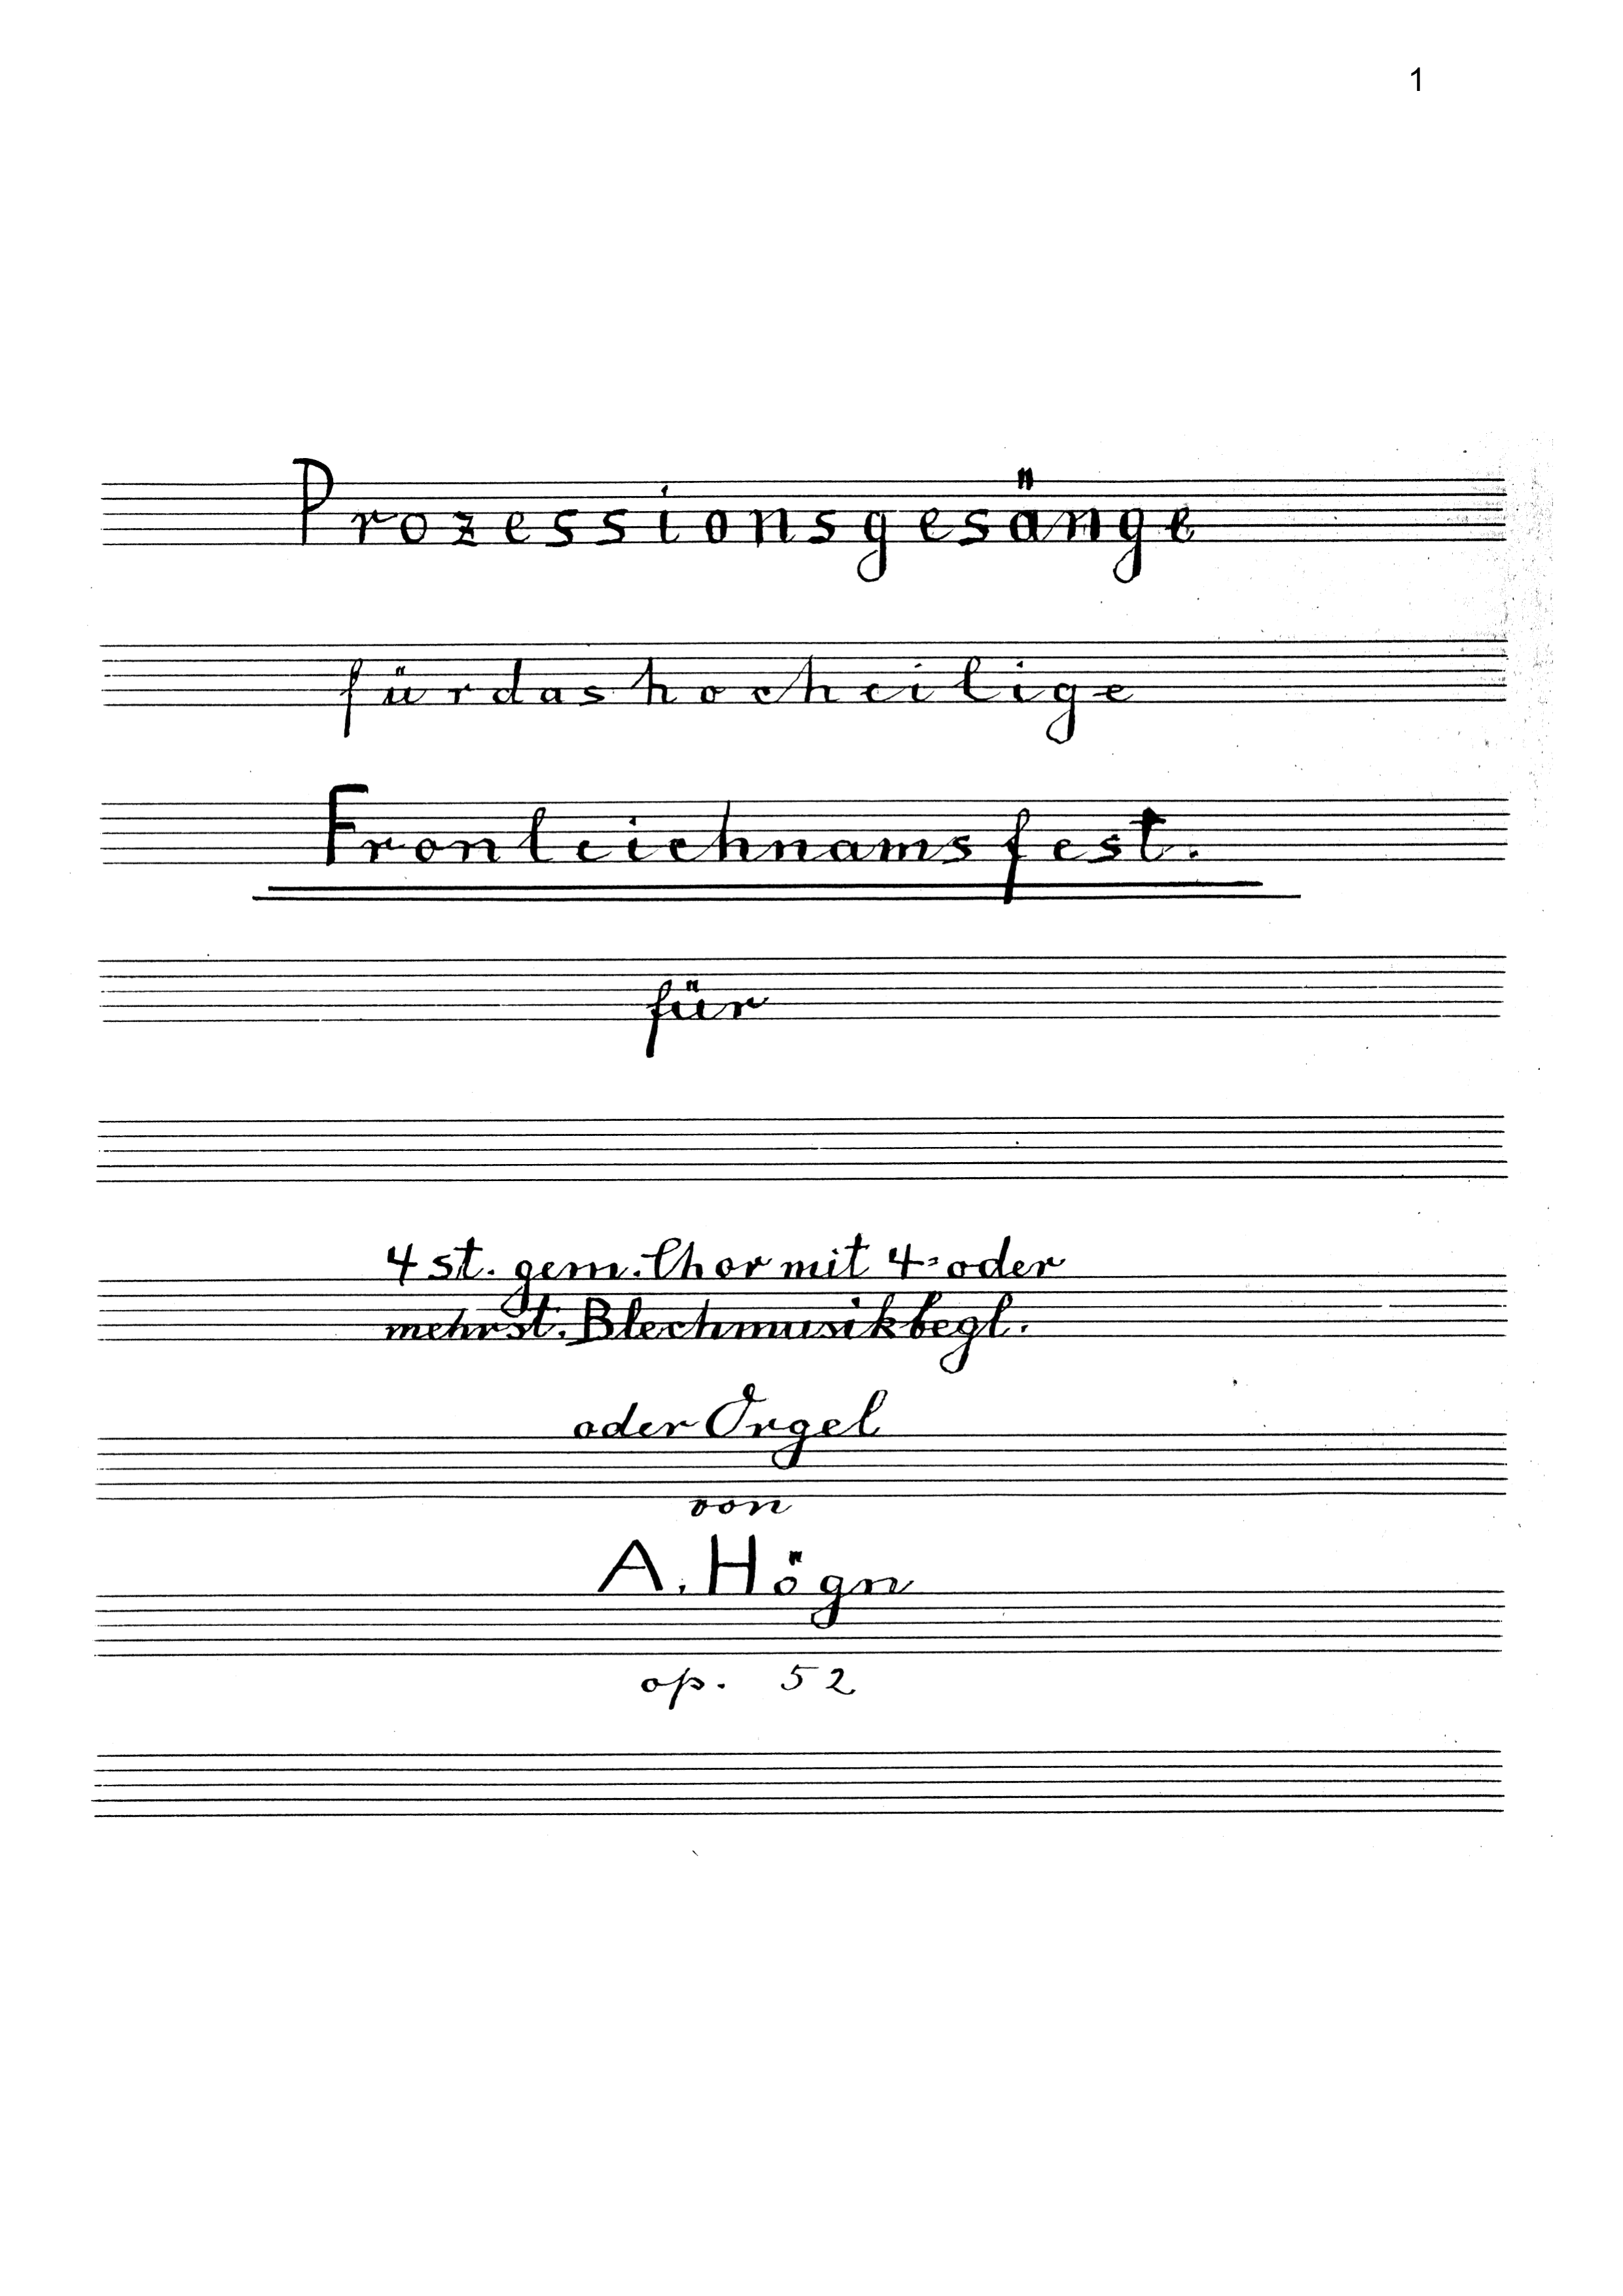 1
Prozessionsgesänge
für das hochheilige
Fronleichnamsfest.
für
4 st. gem. Chor mit 4= oder
mehrst. Blechmusikbegl.
oder Orgel
von
A. Högn
op. 52